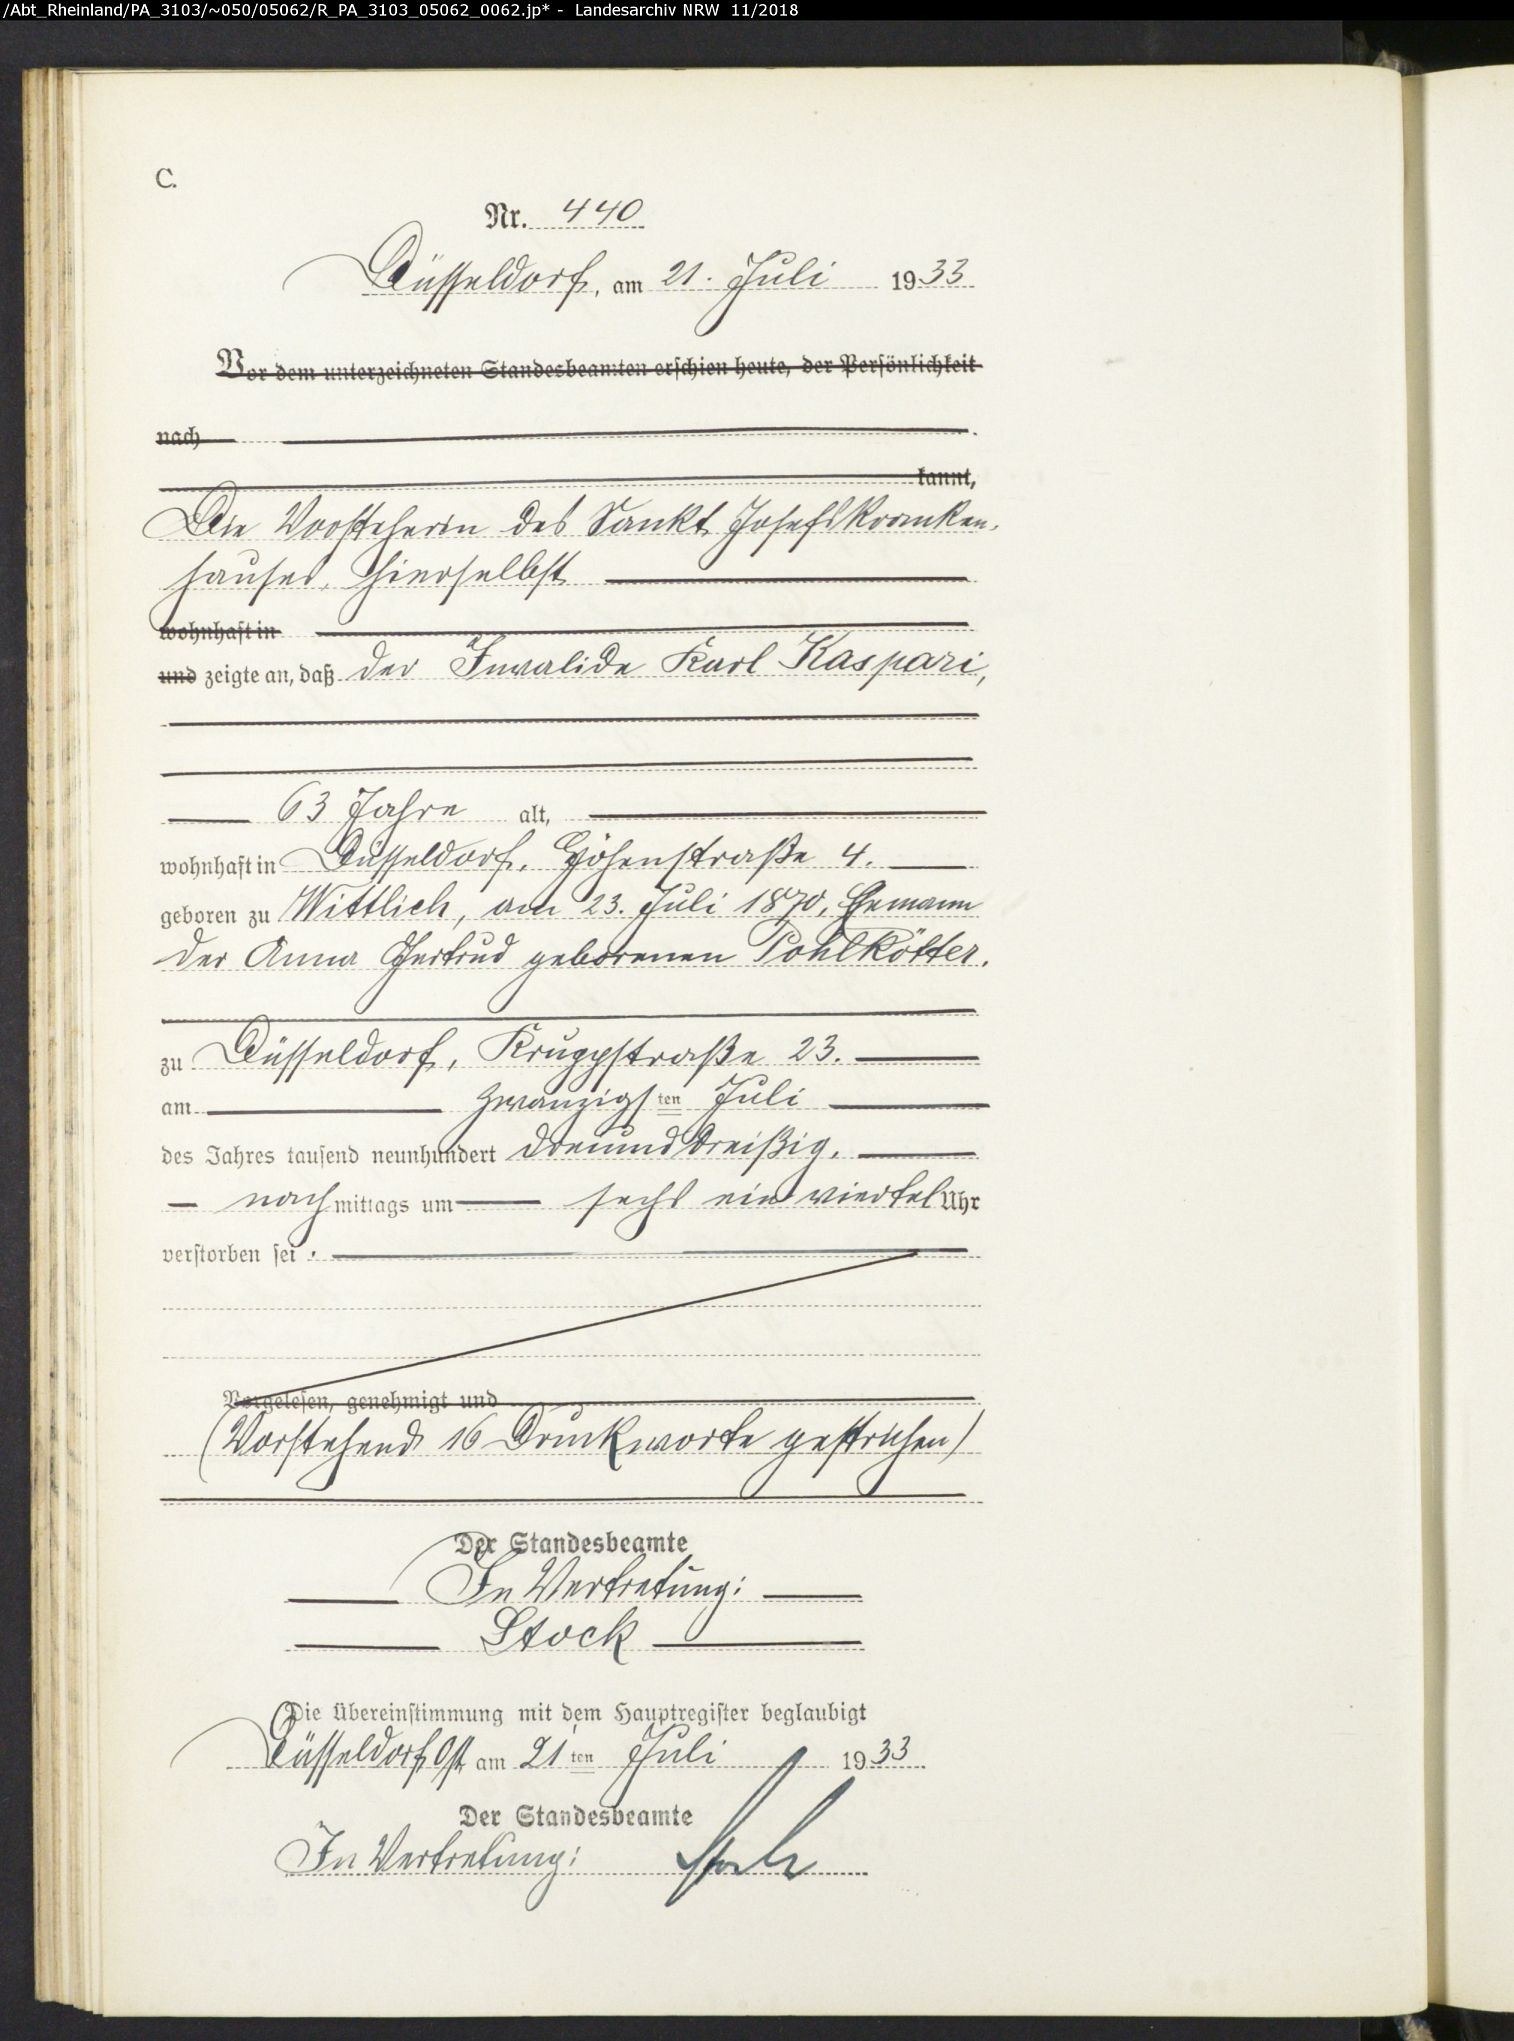 /Abt_Rheinland/PA_3103/~050/05062/R_PA_3103_05062_0062.jp* - Landesarchiv NRW 11/2018
C.
Nr. 440
Düsseldorf, am 21. Juli 1933
Vor dem unterzeichneten Standesbeamten erschien heute, der Persönlichkeit
nach
kannt,
Die Vorsteherin des Sankt Josefskranken-
hauses, hierselbst
wohnhaft in
und zeigte an, daß der Invalide Karl Kaspari,
63 Jahre alt,
wohnhaft in Düsseldorf, Höhenstraße 4.
geboren zu Wittlich, am 23. Juli 1870, Ehemann
der Anna Gertrud geborenen Pohlkötter.
zu Düsseldorf, Kruppstraße 23.
am zwanzigsten Juli
des Jahres tausend neunhundert dreiunddreißig,
nachmittags um sechs ein viertel Uhr
verstorben sei.
Vorgelesen, genehmigt und
(Vorstehend 16 Druckworte gestrichen)
Der Standesbeamte
In Vertretung:
Stock
Die Übereinstimmung mit dem Hauptregister beglaubigt
Düsseldorf Ost am 21ten Juli 1933
Der Standesbeamte
In Vertretung: Stock